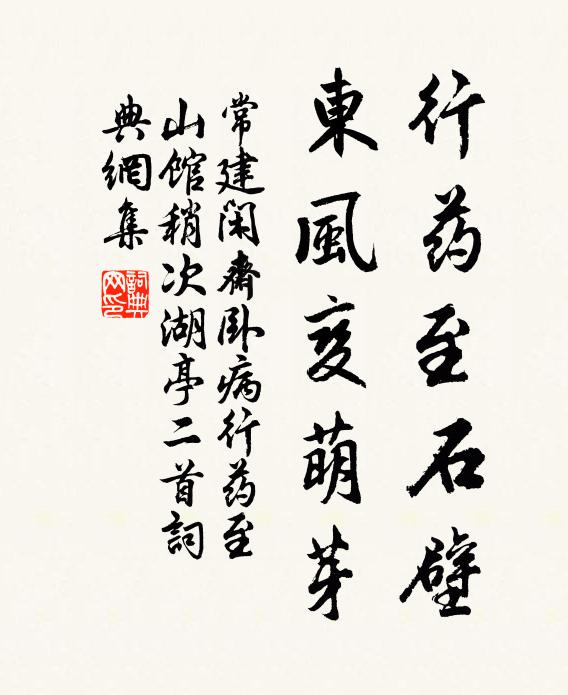 行药至石壁
東風变萌芽
常建閑齋卧病行药至
山館稍次湖亭二首詞
典網集
詞典网印